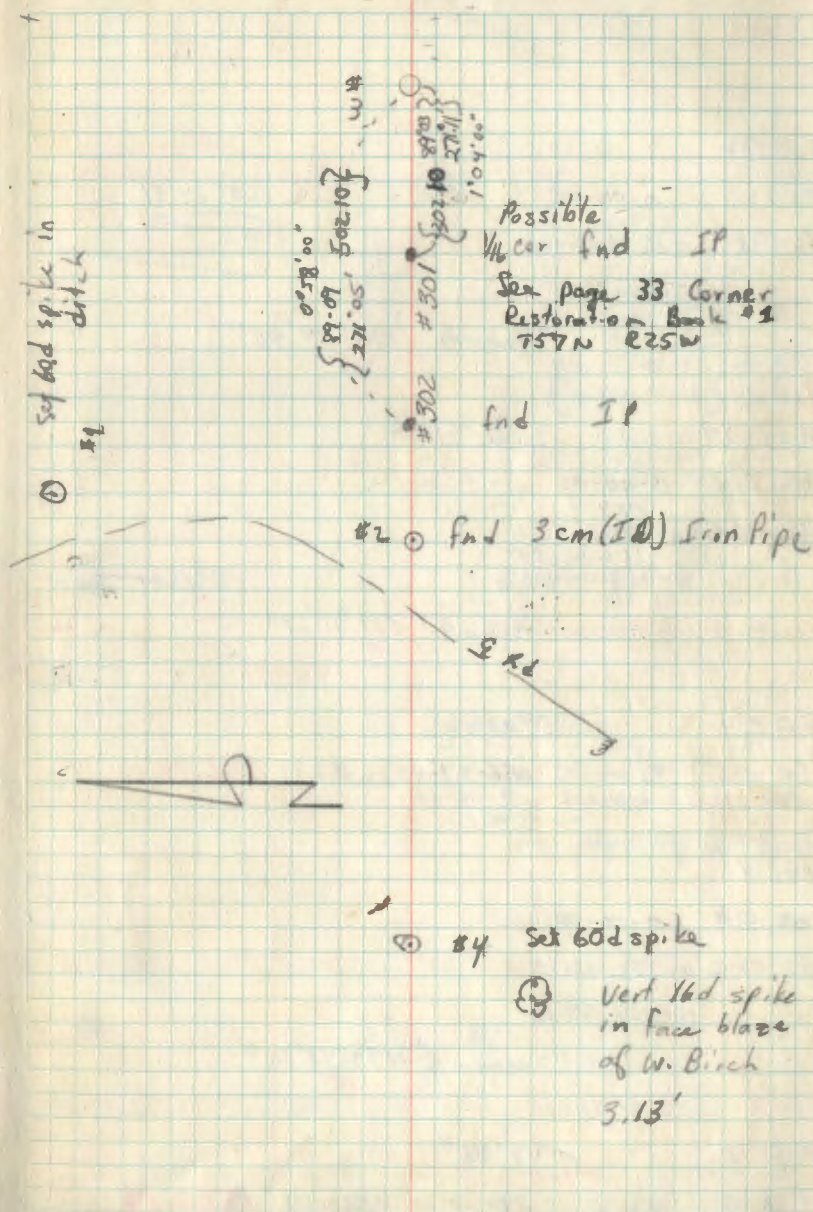 Set 60d spike in
ditch
#1
#3
#301
#302
0°58'00"
89-09
271°05'
50210
1°04'00"
Possible
1/16 cor fnd IP
See page 33 Corner
Restoration Book #1
T57N R25W
fnd IP
#2 fnd 3 cm (ID) Iron Pipe
Rd
#4 Set 60d spike
Vert 16d spike
in face blaze
of W. Birch
3.13'